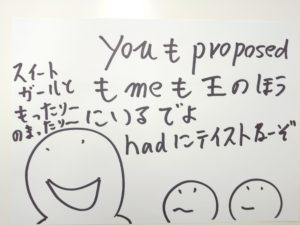 Youも proposed
も meも 王のほう
にいるでよ
hadにテイストるーぞ
スイート
ガールと
もったりー
のまったりー